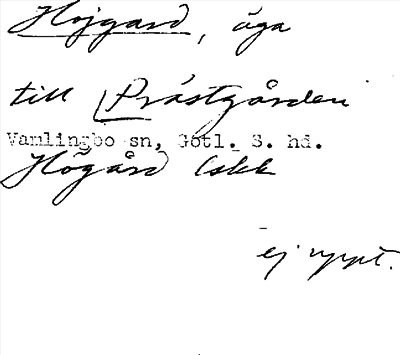 Höjgard, äga
till Prästgården
Vamlingbo sn, Gotl. S. hd.
Högård Iskk
ej uppt.